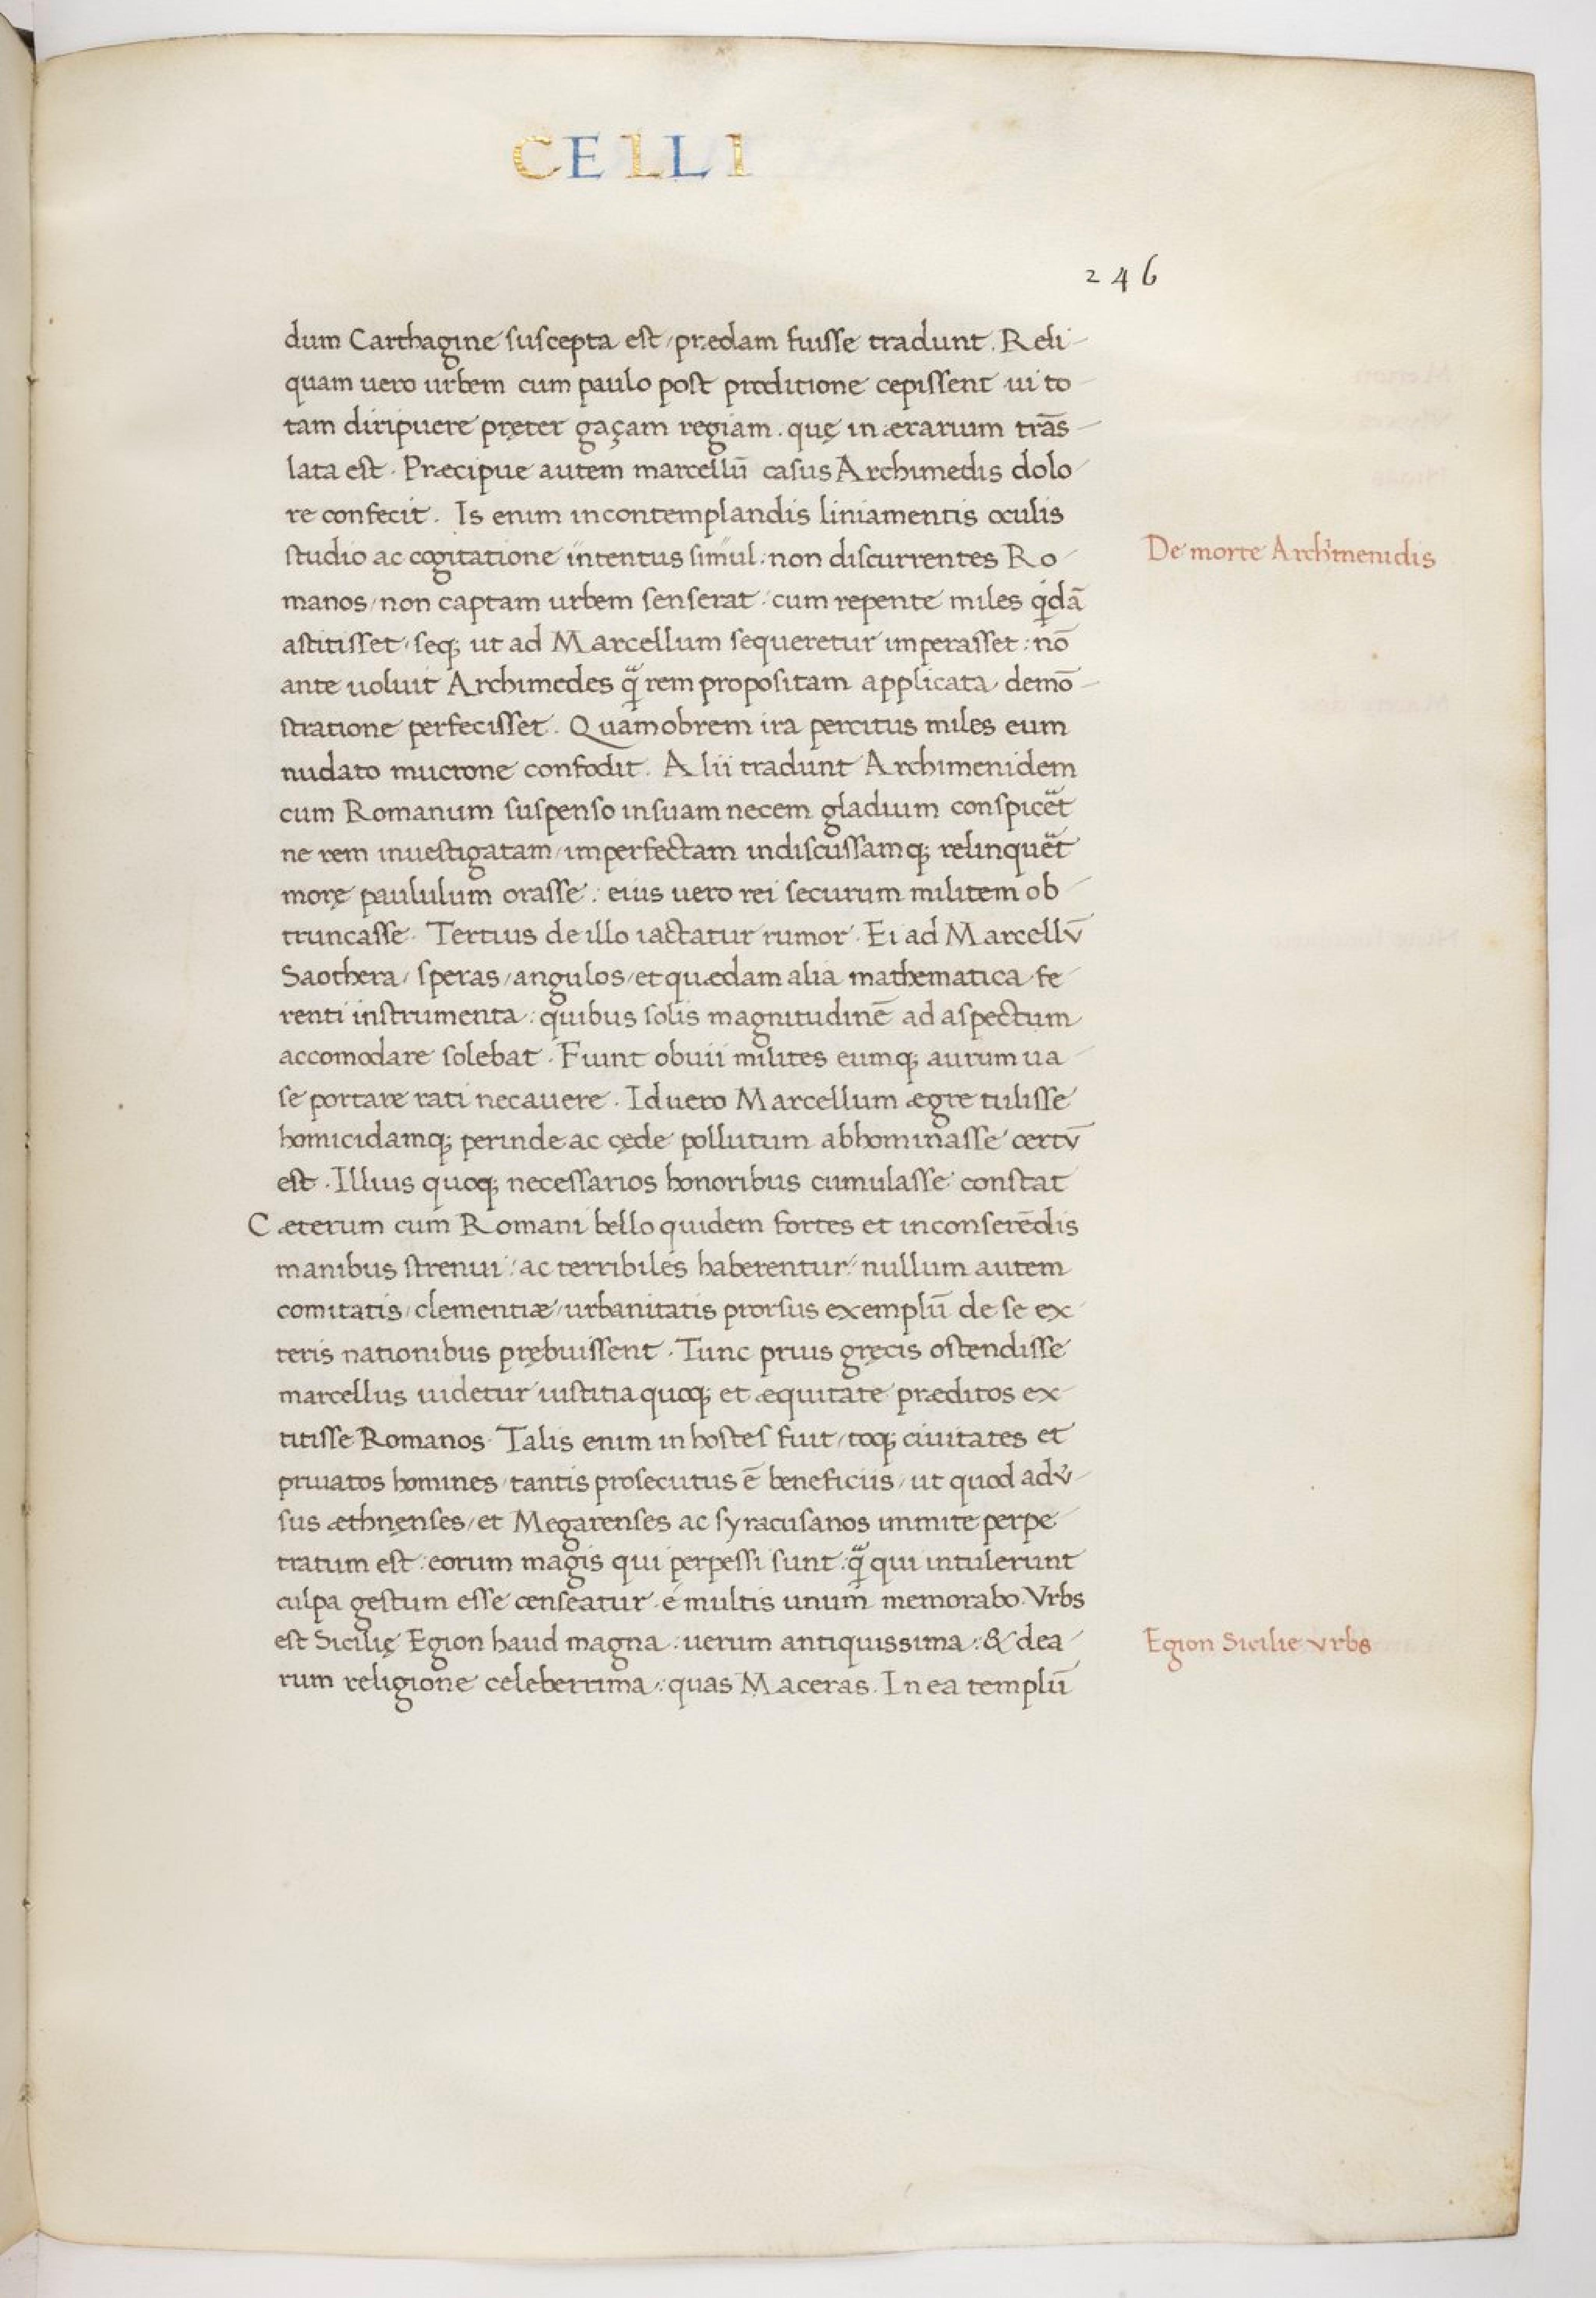 CELLI
246
dum Carthagine suscepta est / prædam fuisse tradunt. Reli-
quam uero urbem cum paulo post proditione cepissent ui to-
tam diripuere pręter gaçam regiam. quę in ærarium trãs-
lata est. Præcipue autem marcellũ casus Archimedis dolo-
re confecit. Is enim in contemplandis liniamentis oculis
studio ac cogitatione intentus simul: non discurrentes Ro-
manos / non captam urbem senserat: cum repente miles q̇dã
astitisset / seq; ut ad Marcellum sequeretur imperasset: nõ
ante uoluit Archimedes q̃ rem propositam applicata demõ-
stratione perfecisset. Quamobrem ira percitus miles eum
nudato mucrone confodit. Alii tradunt Archimenidem
cum Romanum suspenso in suam necem gladium conspicẽt
ne rem inuestigatam / imperfectam indiscussamq; relinquẽt
morę paululum orasse: eius uero rei securum militem ob-
truncasse. Tertius de illo iactatur rumor. Ei ad Marcellv̄
Saothera / speras / angulos / et quædam alia mathematica fe-
renti instrumenta: quibus solis magnitudinẽ ad aspectum
accomodare solebat. Fiunt obuii milites eumq; aurum ua-
se portare rati necauere. Id uero Marcellum ægre tulisse
homicidamq; perinde ac cęde pollutum abhominasse certv̄
est. Illius quoq; necessarios honoribus cumulasse constat
Cæterum cum Romani bello quidem fortes et in conserẽdis
manibus strenui: ac terribiles haberentur: nullum autem
comitatis / clementiæ / urbanitatis prorsus exemplũ de se ex-
teris nationibus prębuissent. Tunc prius gręcis ostendisse
marcellus uidetur iustitia quoq; et æquitate præditos ex-
titisse Romanos. Talis enim in hostes fuit / toq; ciuitates et
priuatos homines / tantis prosecutus ẽ beneficiis / ut quod adv̉-
sus æthnęnses / et Megarenses ac syracusanos immite perpe-
tratum est: eorum magis qui perpessi sunt: q̃ qui intulerunt
culpa gestum esse censeatur. é multis unum memorabo. Vrbs
est Sicilię Egion haud magna: uerum antiquissima: & dea-
rum religione celeberrima: quas Maceras. In ea templũ
De morte Archimenidis
Egion Sicilie vrbs